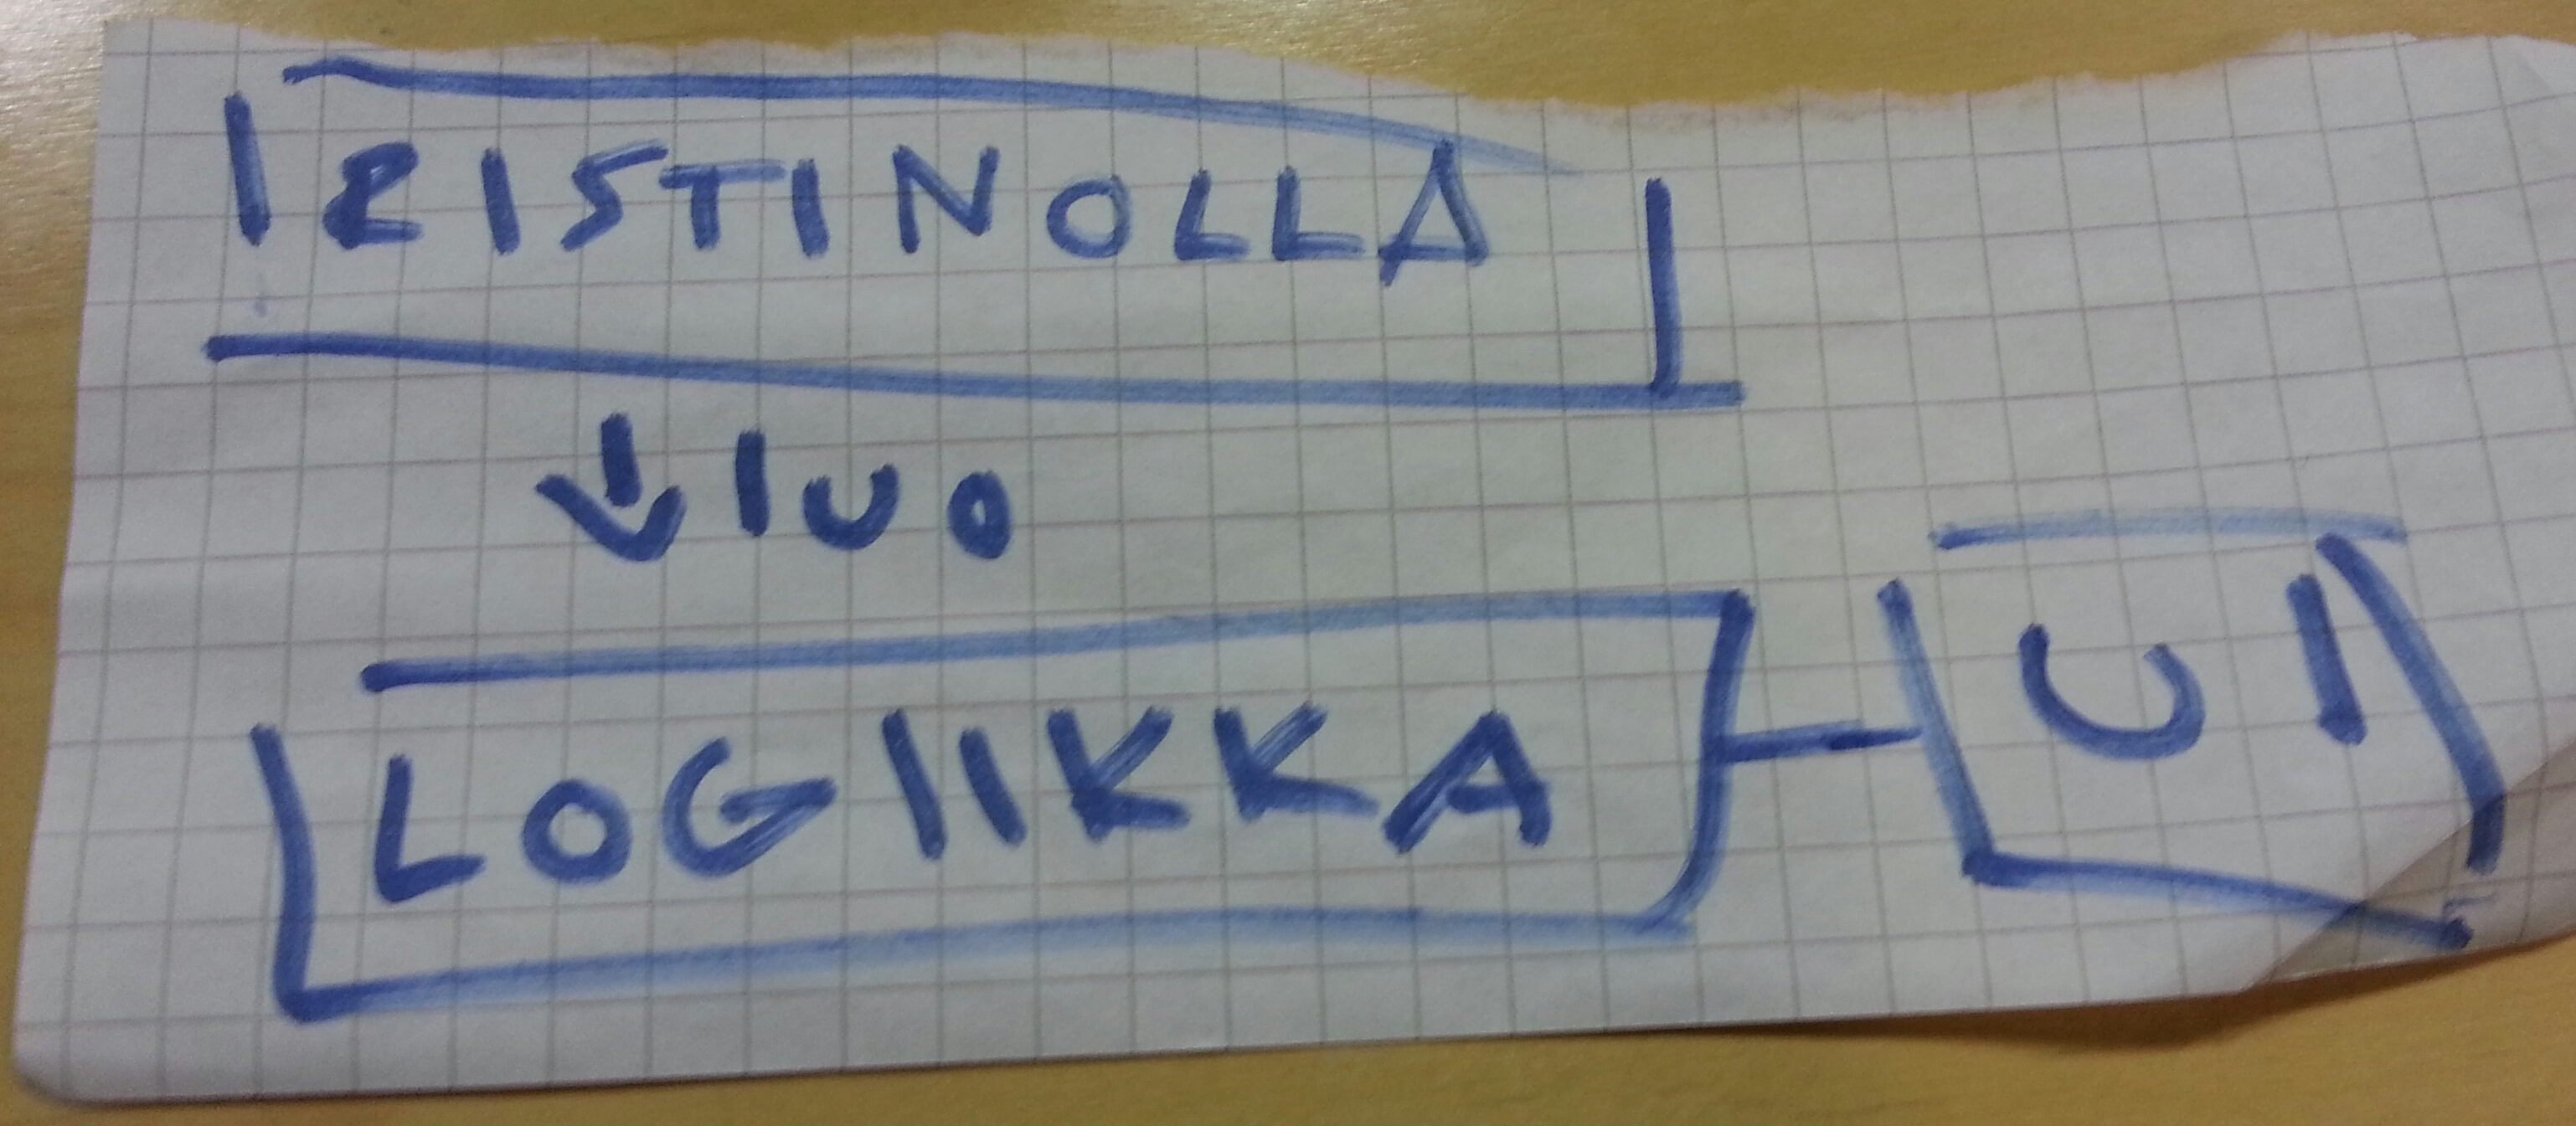 RISTINOLLA
luo
LOGIIKKA
UI